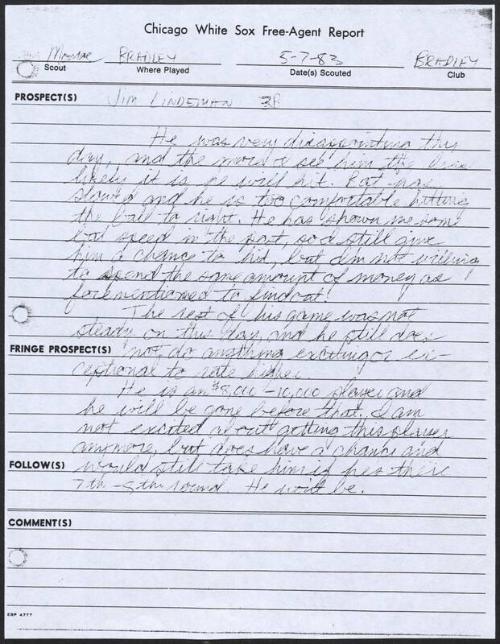 Chicago White Sox Free-Agent Report
Monroe BRADLEY 5-7-83 BRADLEY
Scout Where Played Date(s) Scouted Club
PROSPECT(S) JIM LINDEMAN 3B
He was very disappointing this
day, and the more I see him the less
likely it is he will hit. Bat has
slowed and he is too comfortable hitting
the ball to right. He has shown me some
bat speed in the past, so I still give
him a chance to hit, but I'm not willing
to spend the same amount of money as
forementioned to find out!
The rest of his game was not
steady on this day, and he still does
FRINGE PROSPECT(S) not do anything exciting or ex-
ceptional to rate higher.
He is an $8,000 - 10,000 player and
he will be gone before that. I am
not excited about getting this player
anymore, but does have a chance and
FOLLOW(S) would still take him if he's there
7th-8th round. He won't be.
COMMENT(S)